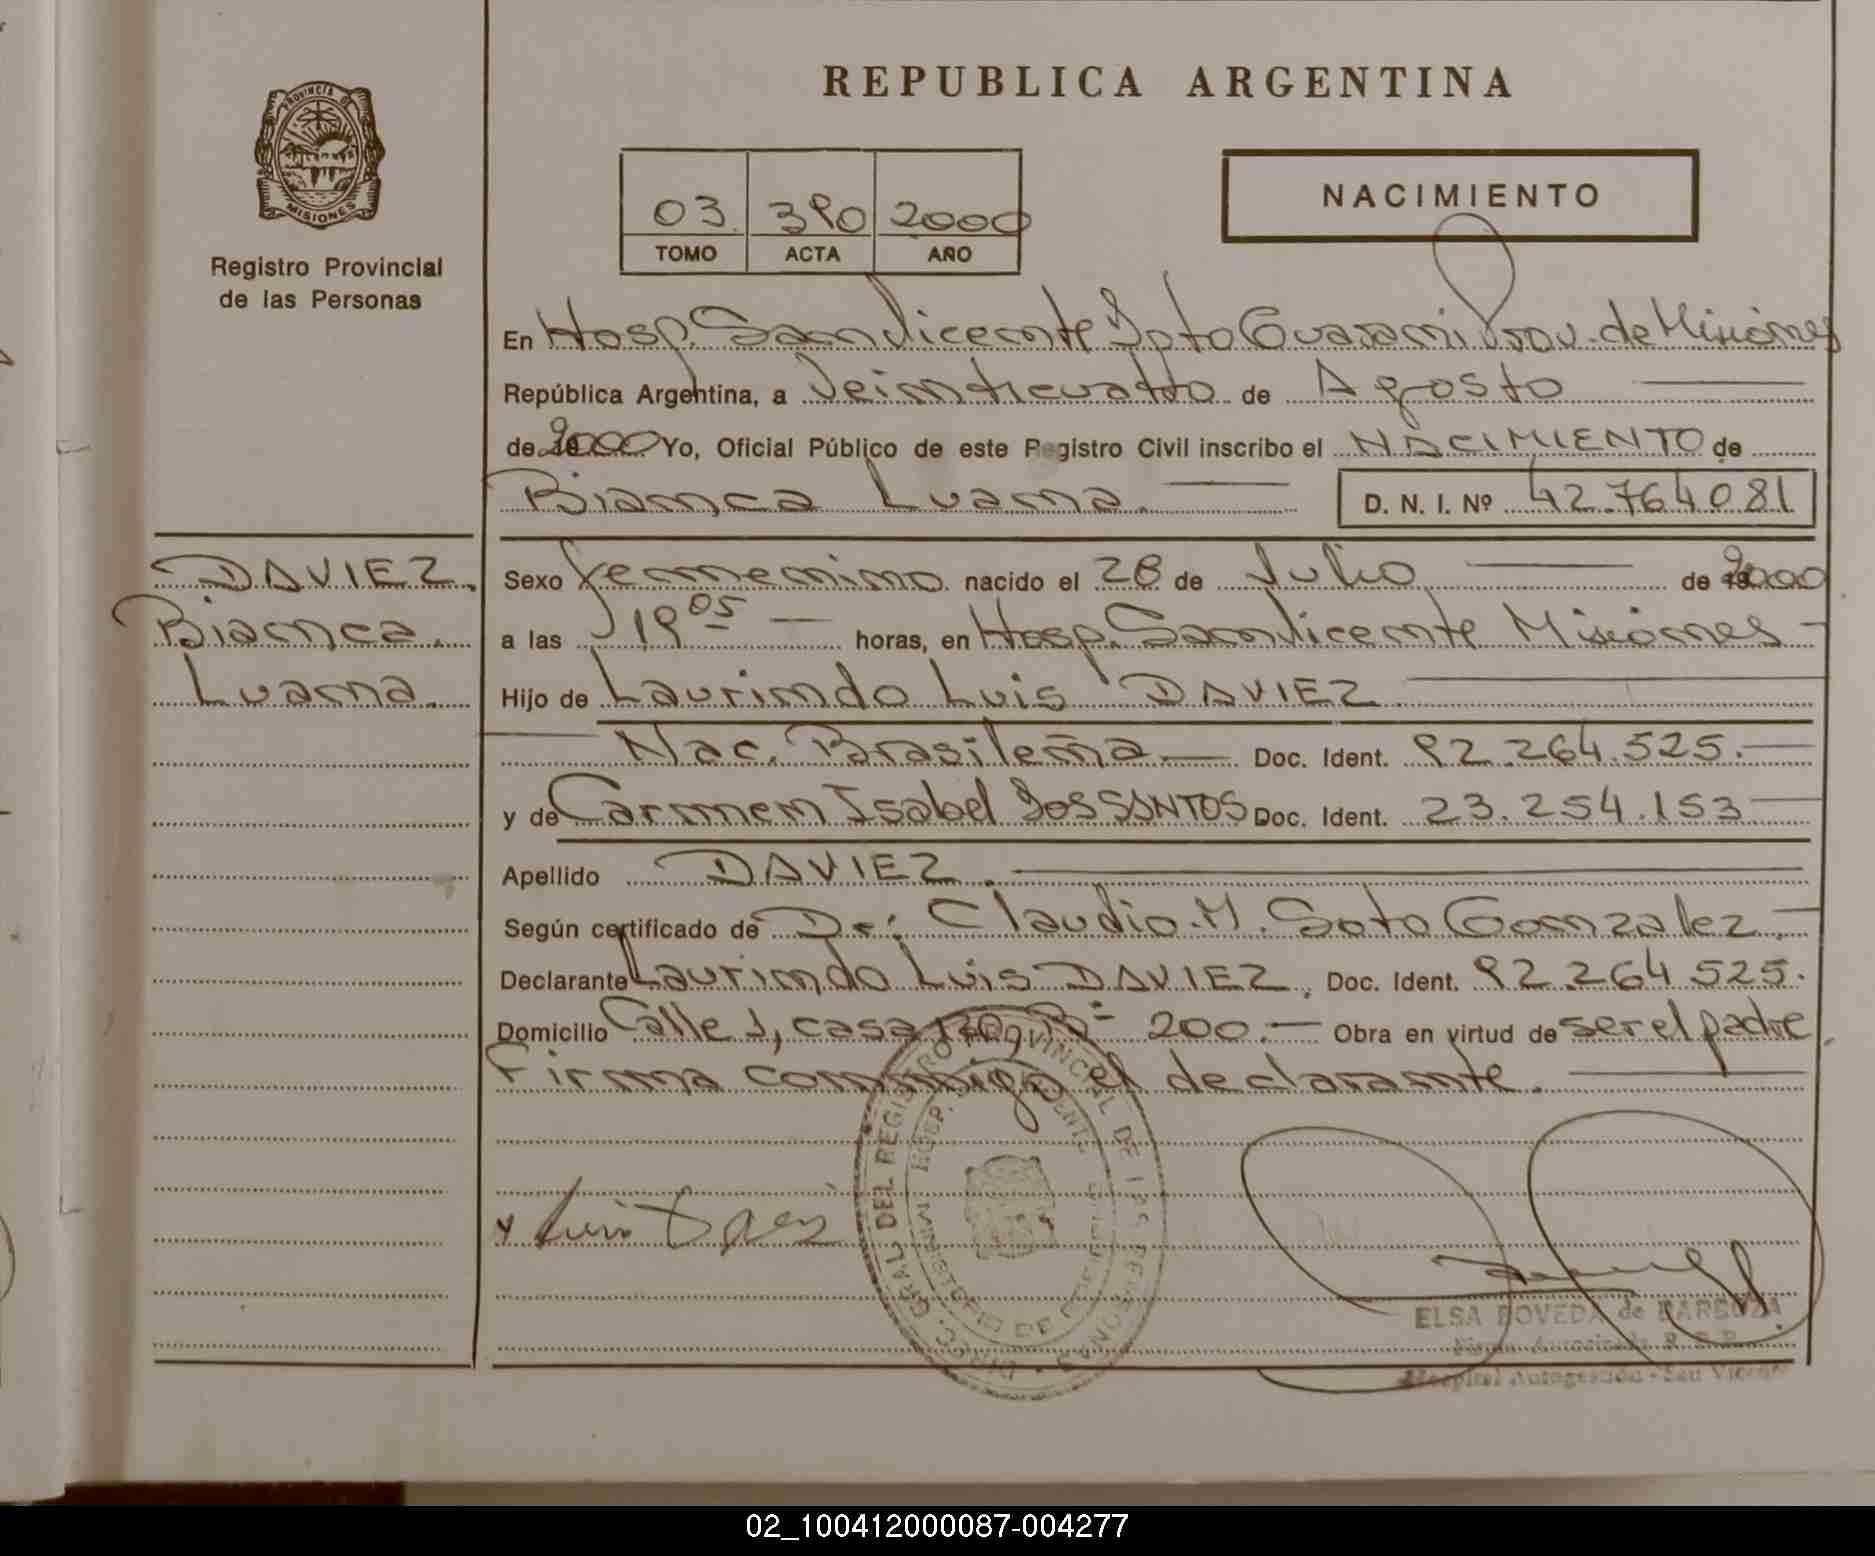 PROVINCIA DE
MISIONES
Registro Provincial
de las Personas
DAVIEZ
Bianca
Luana.
REPUBLICA ARGENTINA
03 390 2000
TOMO ACTA AÑO
NACIMIENTO
En Hosp. San Vicente Dpto Guarani Prov. de Misiones
República Argentina, a Veinticuatro de Agosto
de 2000 Yo, Oficial Público de este Registro Civil inscribo el NACIMIENTO de
Bianca Luana. D. N. I. Nº 42.764.081
Sexo Femenino nacido el 28 de Julio de 2000
a las 19 05 horas, en Hosp. San Vicente Misiones
Hijo de Laurindo Luis DAVIEZ
Nac. Brasileña Doc. Ident. 92.264.525.
y de Carmen Isabel DOS SANTOS Doc. Ident. 23.254.153
Apellido DAVIEZ.
Según certificado de Dr: Claudio M. Soto Gonzalez.
Declarante Laurindo Luis DAVIEZ. Doc. Ident. 92.264.525.
Domicilio Calle 1, casa 120, Bº 200. Obra en virtud de ser el padre
Firma conmigo el declarante.
DIREC. GRAL. DEL REGISTRO PROVINCIAL DE LAS PERSONAS
MINISTERIO DE GOBIERNO
x Luis
ELSA POVEDA de BARBOZA
Firma Autorizada R. P. P.
Hospital Autogestión - San Vicente
02_100412000087-004277